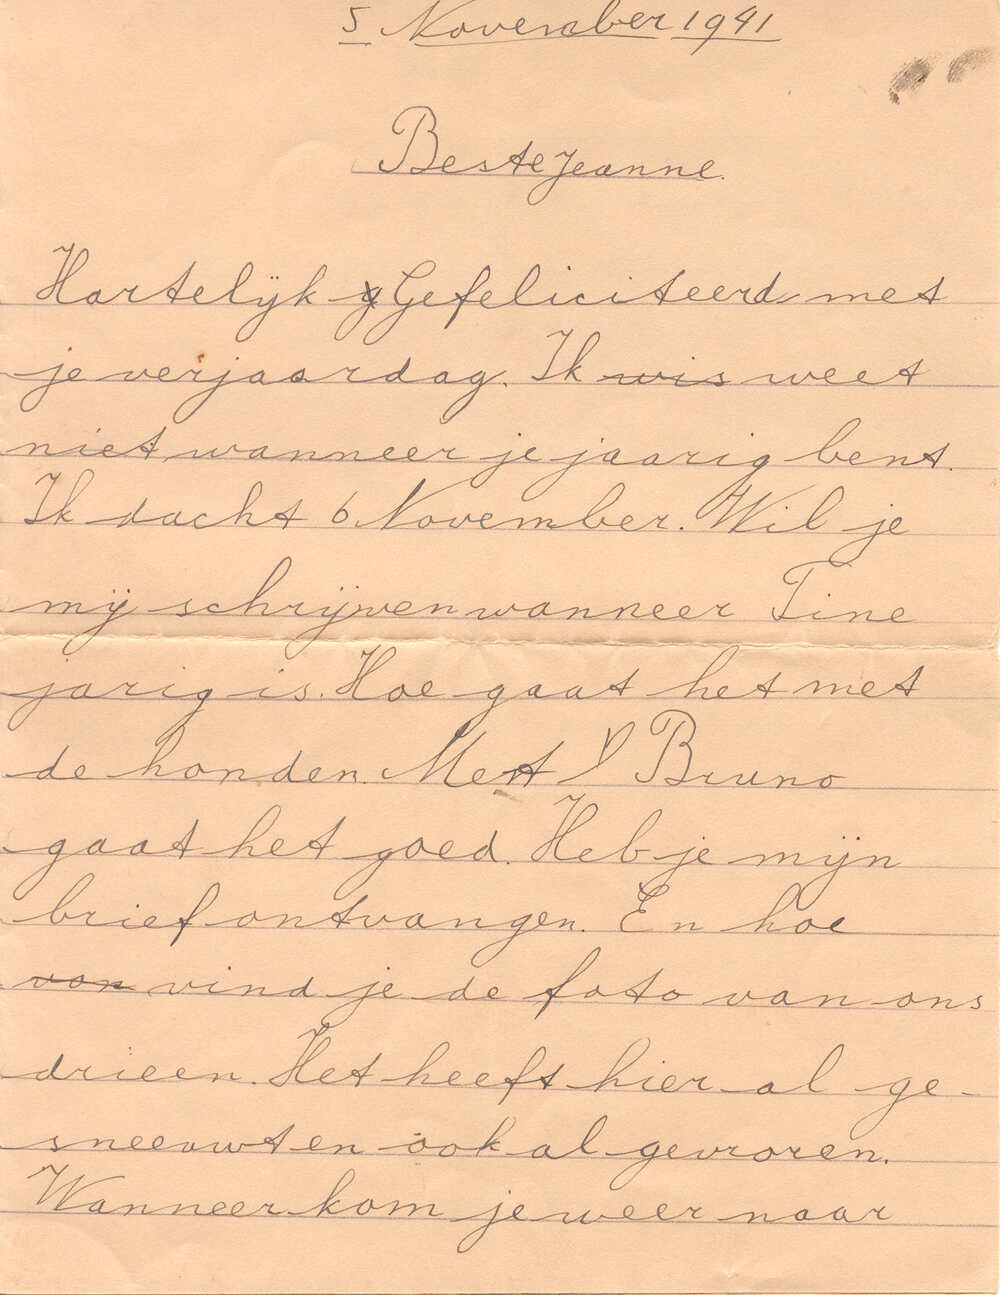 5 November 1941
Beste Jeanne.
Hartelijk Gefeliciteerd met
je verjaardag. Ik wis weet
niet wanneer je jaarig bent.
Ik dacht 6 November. Wil je
mij schrijven wanneer Tine
jarig is. Hoe gaat het met
de honden. Met Bruno
gaat het goed. Heb je mijn
brief ontvangen. En hoe
van vind je de foto van ons
drieen. Het heeft hier al ge-
sneeuwt en ook al gevroren.
Wanneer kom je weer naar